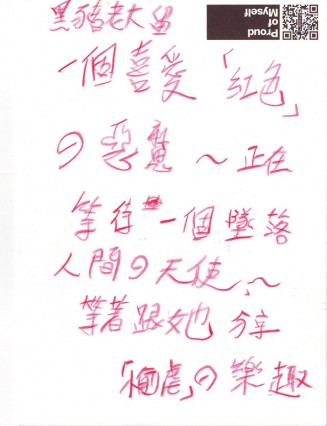 黑豬老大留
Proud
of
Myself
一個喜愛「紅色」
の惡魔～正在
等待一個墜落
人間の天使～～
等著跟她分享
の樂趣